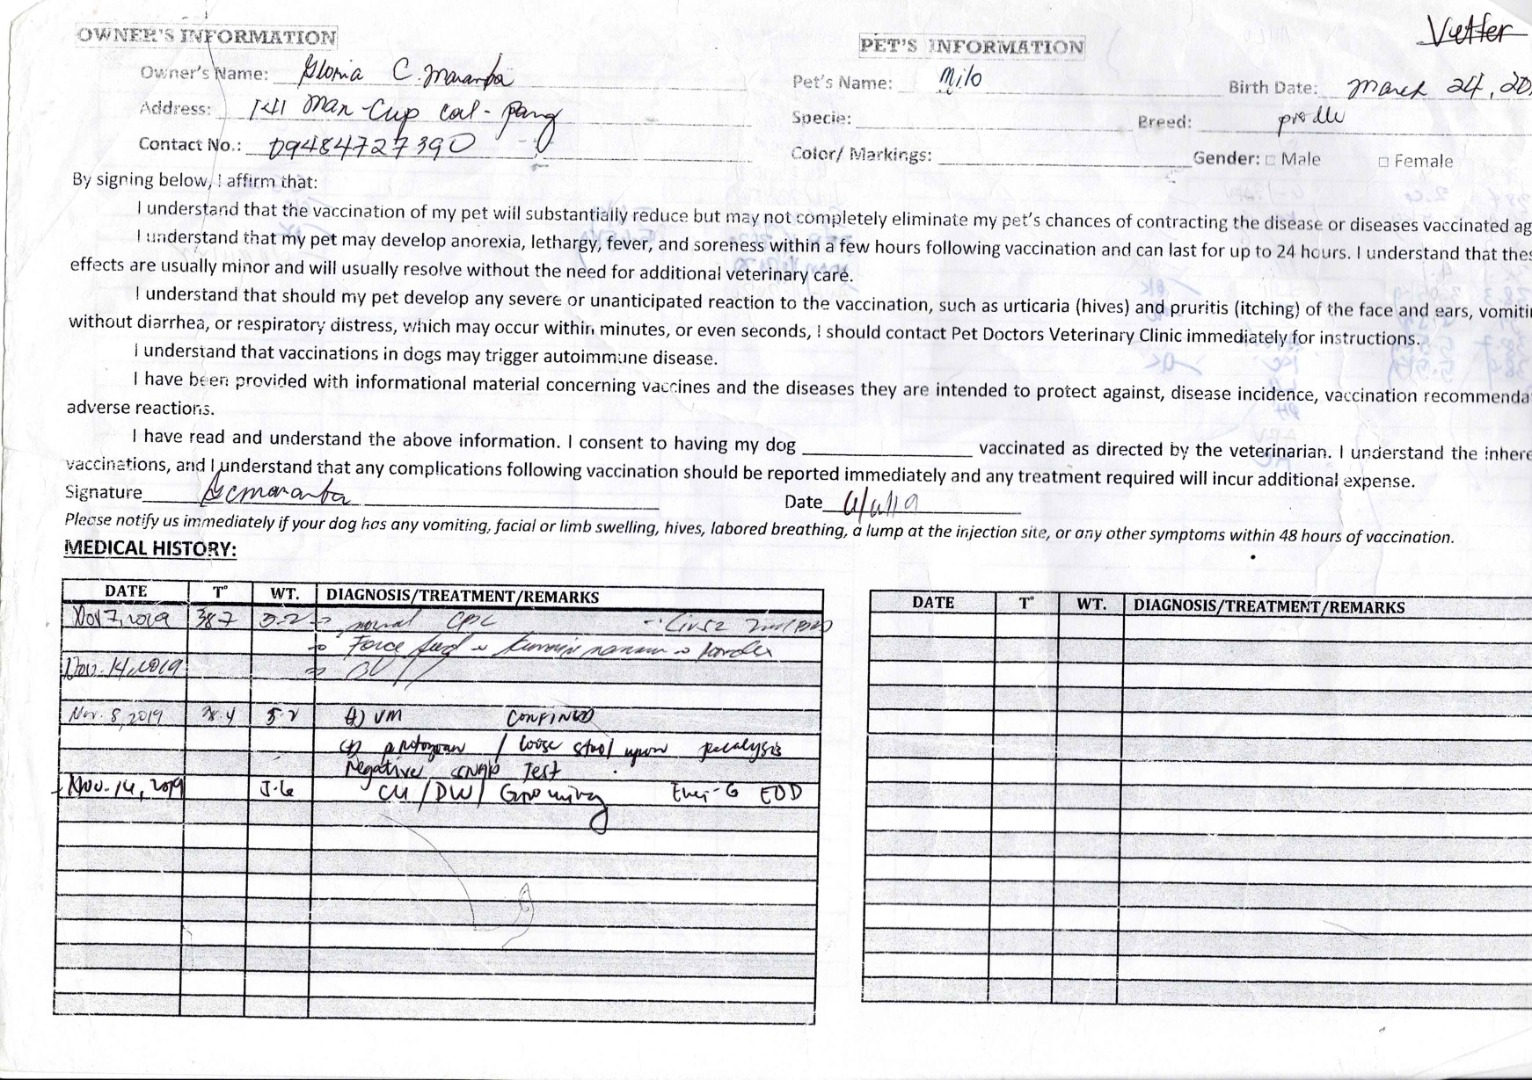 Vetter
OWNER'S INFORMATION
PET'S INFORMATION
Owner's Name: Gloria C. Maramba
Pet's Name: Milo
Birth Date: March 24, 20
Address: 1411 Man-Cup Cal-Pang
Specie:
Breed: poodle
Contact No.: 09484727390
Color/ Markings:
Gender: □ Male □ Female
By signing below, I affirm that:
I understand that the vaccination of my pet will substantially reduce but may not completely eliminate my pet's chances of contracting the disease or diseases vaccinated ag
I understand that my pet may develop anorexia, lethargy, fever, and soreness within a few hours following vaccination and can last for up to 24 hours. I understand that thes
effects are usually minor and will usually resolve without the need for additional veterinary care.
I understand that should my pet develop any severe or unanticipated reaction to the vaccination, such as urticaria (hives) and pruritis (itching) of the face and ears, vomiti
without diarrhea, or respiratory distress, which may occur within minutes, or even seconds, I should contact Pet Doctors Veterinary Clinic immediately for instructions.
I understand that vaccinations in dogs may trigger autoimmune disease.
I have been provided with informational material concerning vaccines and the diseases they are intended to protect against, disease incidence, vaccination recommenda
adverse reactions.
I have read and understand the above information. I consent to having my dog ____ vaccinated as directed by the veterinarian. I understand the inhere
vaccinations, and I understand that any complications following vaccination should be reported immediately and any treatment required will incur additional expense.
Signature Gcmaramba
Date
Please notify us immediately if your dog has any vomiting, facial or limb swelling, hives, labored breathing, a lump at the injection site, or any other symptoms within 48 hours of vaccination.
MEDICAL HISTORY:
DATE T° WT. DIAGNOSIS/TREATMENT/REMARKS
DATE T° WT. DIAGNOSIS/TREATMENT/REMARKS
Nov 7, 2019 38.7 5.2
Force feed
Nov. 14, 2019
Nov. 8, 2019 38.4 5.2 VM CONFINED
(+) protozoan / loose stool upon fecalysis
Negative SNAP Test
Nov. 14, 2019 5.6 CU/DW/ Grooming Ener-G EOD